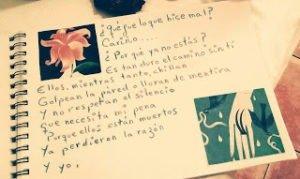 ¿Qué fue lo que hice mal?
Cariño...
¿Por qué ya no estás?
Es tan duro el camino sin ti
Ellos, mientras tanto, chillan
Golpean la pared o lloran de mentira
Y no respetan el silencio
Que necesita mi pena
Porque ellos están muertos
Ya perdieron la razón
Y yo,